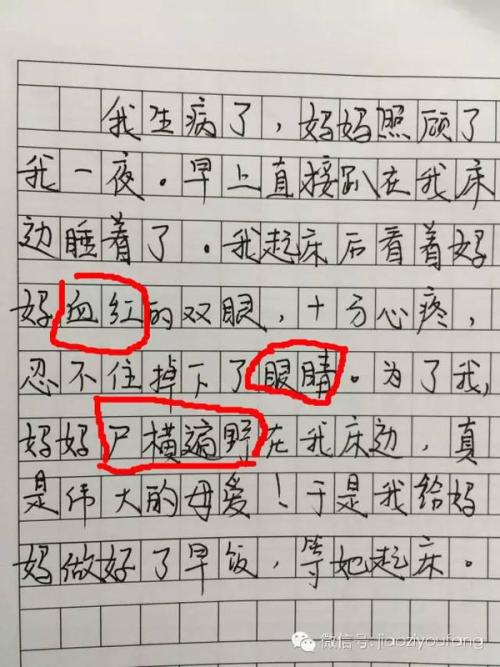 我生病了，妈妈照顾了
我一夜。早上直接趴在我床
边睡着了。我起床后看着妈
妈血红的双眼，十分心疼，
忍不住掉下了眼睛。为了我，
妈妈尸横遍野在我床边，真
是伟大的母爱！于是我给妈
妈做好了早饭，等她起床。
微信号: jiaoziyoufang